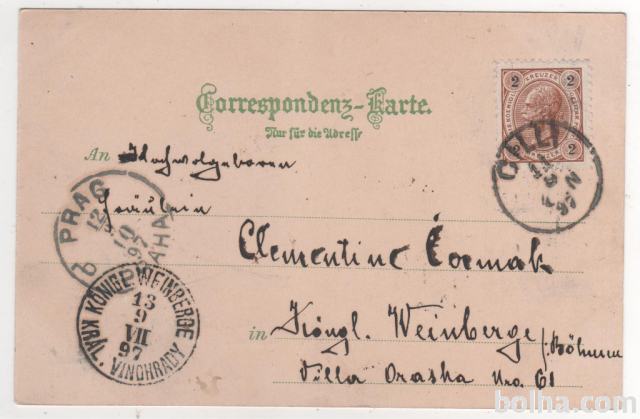 Correspondenz-Karte.
Nur für die Adresse
2 KREUZER 2
2
An Hochwolgeboren
Fräulein
Clementine Čermak
in Köngl. Weinberge
/: Böhmen
Villa Orasha Nro. 61
CILLI
97
PRAG
12
10
97
PRAHA
KÖNIGL. WEINBERGE
13
9
VII
97
KRÁL. VINOHRADY
bolha.com